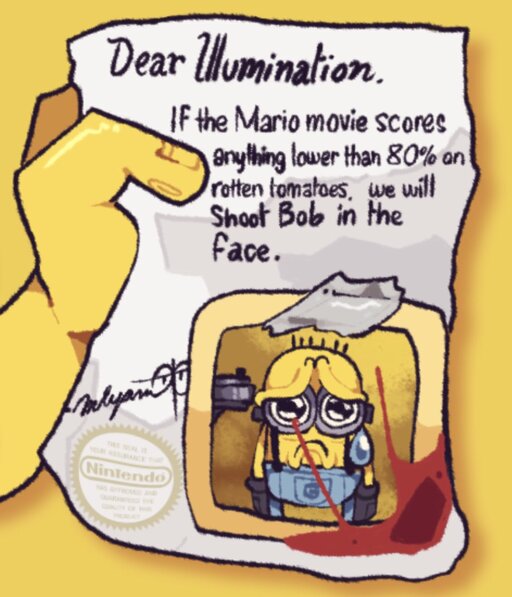 Dear Illumination.
IF the Mario movie scores
anything lower than 80% on
rotten tomatoes, we will
Shoot Bob in the
face.
THIS SEAL IS
YOUR ASSURANCE THAT
Nintendo
HAS APPROVED AND
GUARANTEED THE
QUALITY OF THIS
PRODUCT
G